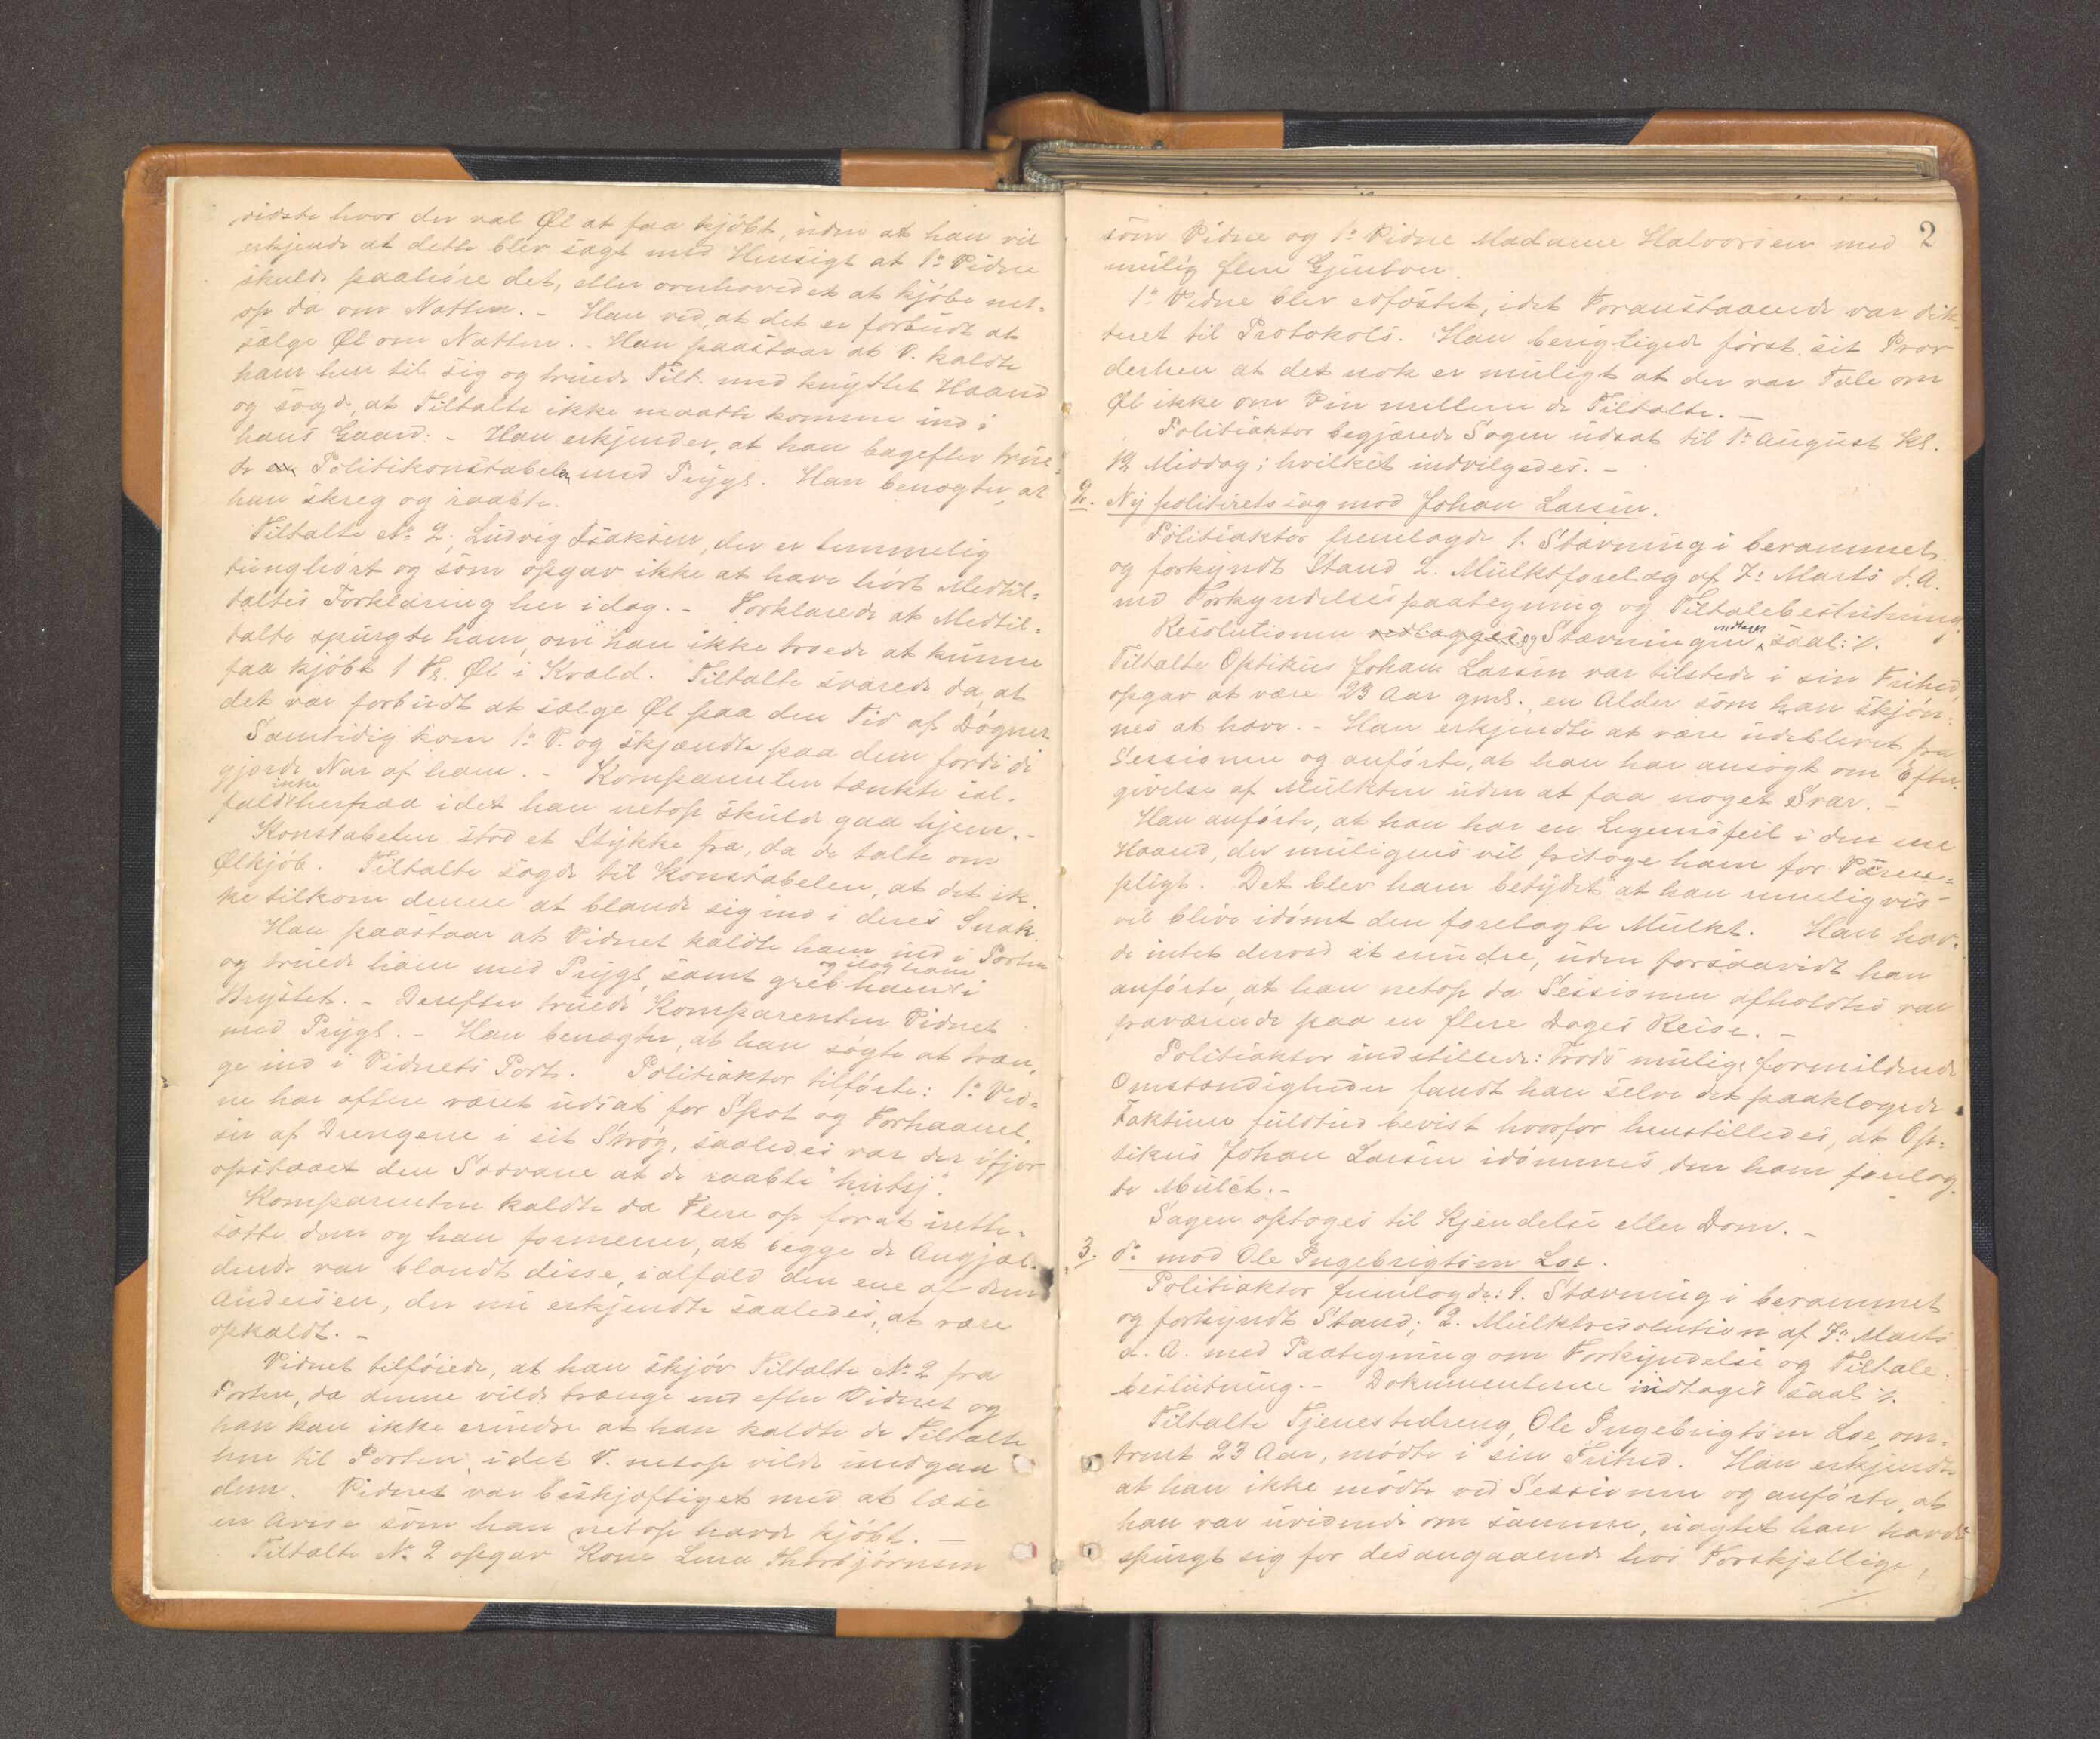 vidste hvor der val Øl at faa kjøbt, uden at han vil
erkjende at dette blev sagt med Hensigt at 1ste Vidne
skulde paahøre det, eller overhovedet at kjøbe net-
op da om Natten. - Han ved, at det er forbudt at
sælge Øl om Natten. - Han paastaar at V. kaldte
ham hen til sig og truede Tilt. med knyttet Haand
og sagde, at Tiltalte ikke maatte komme ind i
hans Gaard. - Han erkjender, at han bagefter true-
de en Politikonstabelen med Prygl. Han benegter, at
han skreg og raabte.
Tiltalte No 2, Ludvig Isaksen, der er temmelig
tunghørt og som opgav ikke at have hørt Medtil-
taltes Forklaring her idag. - Forklarede at Medtil-
talte spurgte ham, om han ikke troede at kunne
faa kjøbt 1 Fl. Øl i Kvæld. Tiltalte svarede da, at
det var forbudt at sælge Øl paa den Tid af Døgnet
Samtidig kom 1ste V. og skjændte paa dem fordi de
gjorde Nar af ham. - Komparenten tænkte ial-
fald ikke herpaa idet han netop skulde gaa hjem. -
Konstabelen stod et Stykke fra, da de talte om
Ølkjøb. Tiltalte sagde til Konstabelen, at det ik-
ke tilkom denne at blande sig ind i deres Snak.
Han paastaar at Vidnet kaldte ham ind i Porten
og truede ham med Prygl, samt greb ham og slog ham i
Brystet. - Derefter truede Komparenten Vidnet
med Prygl. - Han benægter, at han søgte at træn-
ge ind i Vidnets Port. Politiaktor tilførte: 1ste Vid-
ne har oftere været udsat for Spot og Forhaanel-
ser af Drengene i sit Strøg, saaledes var der ifjor
opstaaet den Sædvane at de raabte "hutsj".
Komparenten kaldte da Flere op for at irette-
sætte dem og han formener, at begge de Angjæl-
dende var blandt disse, ialfald den ene af dem
Andersen, der nu erkjendte saaledes, at være
opkaldt. -
Vidnet tilføiede, at han skjøv Tiltalte No 2 fra
Porten, da denne vilde trænge ind efter Vidnet og
han kan ikke erindre at han kaldte de Tiltalte
hen til Porten, idet V. netop vilde undgaa
dem. Vidnet var beskjæftiget med at læse
en Avis som han netop havde kjøbt. -
Tiltalte No 2 opgav Kone Lina Thorbjørnsen
2
som Vidne og 1ste Vidne Madame Halvorsen med
mulig flere Gjenboer.
1ste Vidne blev edfæstet, idet Foranstaaende var dik-
teret til Protokols. Han berigtigede først sit Prov
derhen at det nok er muligt at der var Tale om
Øl ikke om Vin mellem de Tiltalte. -
Politiaktor begjærede Sagen udsat til 1ste August Kl.
12 Middag; hvilket indvilgedes. -
2. Ny politiretssag mod Johan Larsen.
Politiaktor fremlagde 1. Stævning i berammet
og forkyndt Stand 2. Mulktforelæg af 7de Marts d. A.
med Forkyndelsespaategning og Tiltalebeslutning.
Resolutionen vedlægges og Stævningen indtages saal: ٪.
Tiltalte Optikus Johan Larsen var tilstede i sin Frihed,
opgav at være 23 Aar gml., en Alder som han skjøn-
nes at have. - Han erkjendte at være udeblevet fra
Sessionen og anførte, at han har ansøgt om Efter-
givelse af Mulkten uden at faa noget Svar. -
Han anførte, at han har en Legemsfeil i den ene
Haand, der muligens vil fritage ham for Værne-
pligt. Det blev ham betydet at han rimeligvis
vil blive idømt den forelagte Mulkt. Han hav-
de intet derved at erindre, uden forsaavidt han
anførte, at han netop da Sessionen afholdtes var
fraværende paa en flere Dages Reise. -
Politiaktor indstillede: Trods mulige formildende
Omstændigheder fandt han selve det paaklagede
Faktum fuldtud bevist hvorfor henstilledes, at Op-
tikus Johan Larsen idømmes den ham forelag-
te Mulct. -
Sagen optoges til Kjendelse eller Dom. -
3. do mod Ole Ingebrigtsen Loe.
Politiaktor fremlagde: 1. Stævning i berammet
og forkyndt Stand; 2. Mulktresolution af 7de Marts
d. A. med Paategning om Forkyndelse og Tiltale-
beslutning. - Dokumenterne indtages saal ٪.
Tiltalte Tjenestedreng, Ole Ingebrigtsen Loe, om-
trent 23 Aar, mødte i sin Frihed. Han erkjendte
at han ikke mødte ved Sessionen og anførte, at
han var uvidende om samme, uagtet han havde
spurgt sig for desangaaende hos Forskjellige,